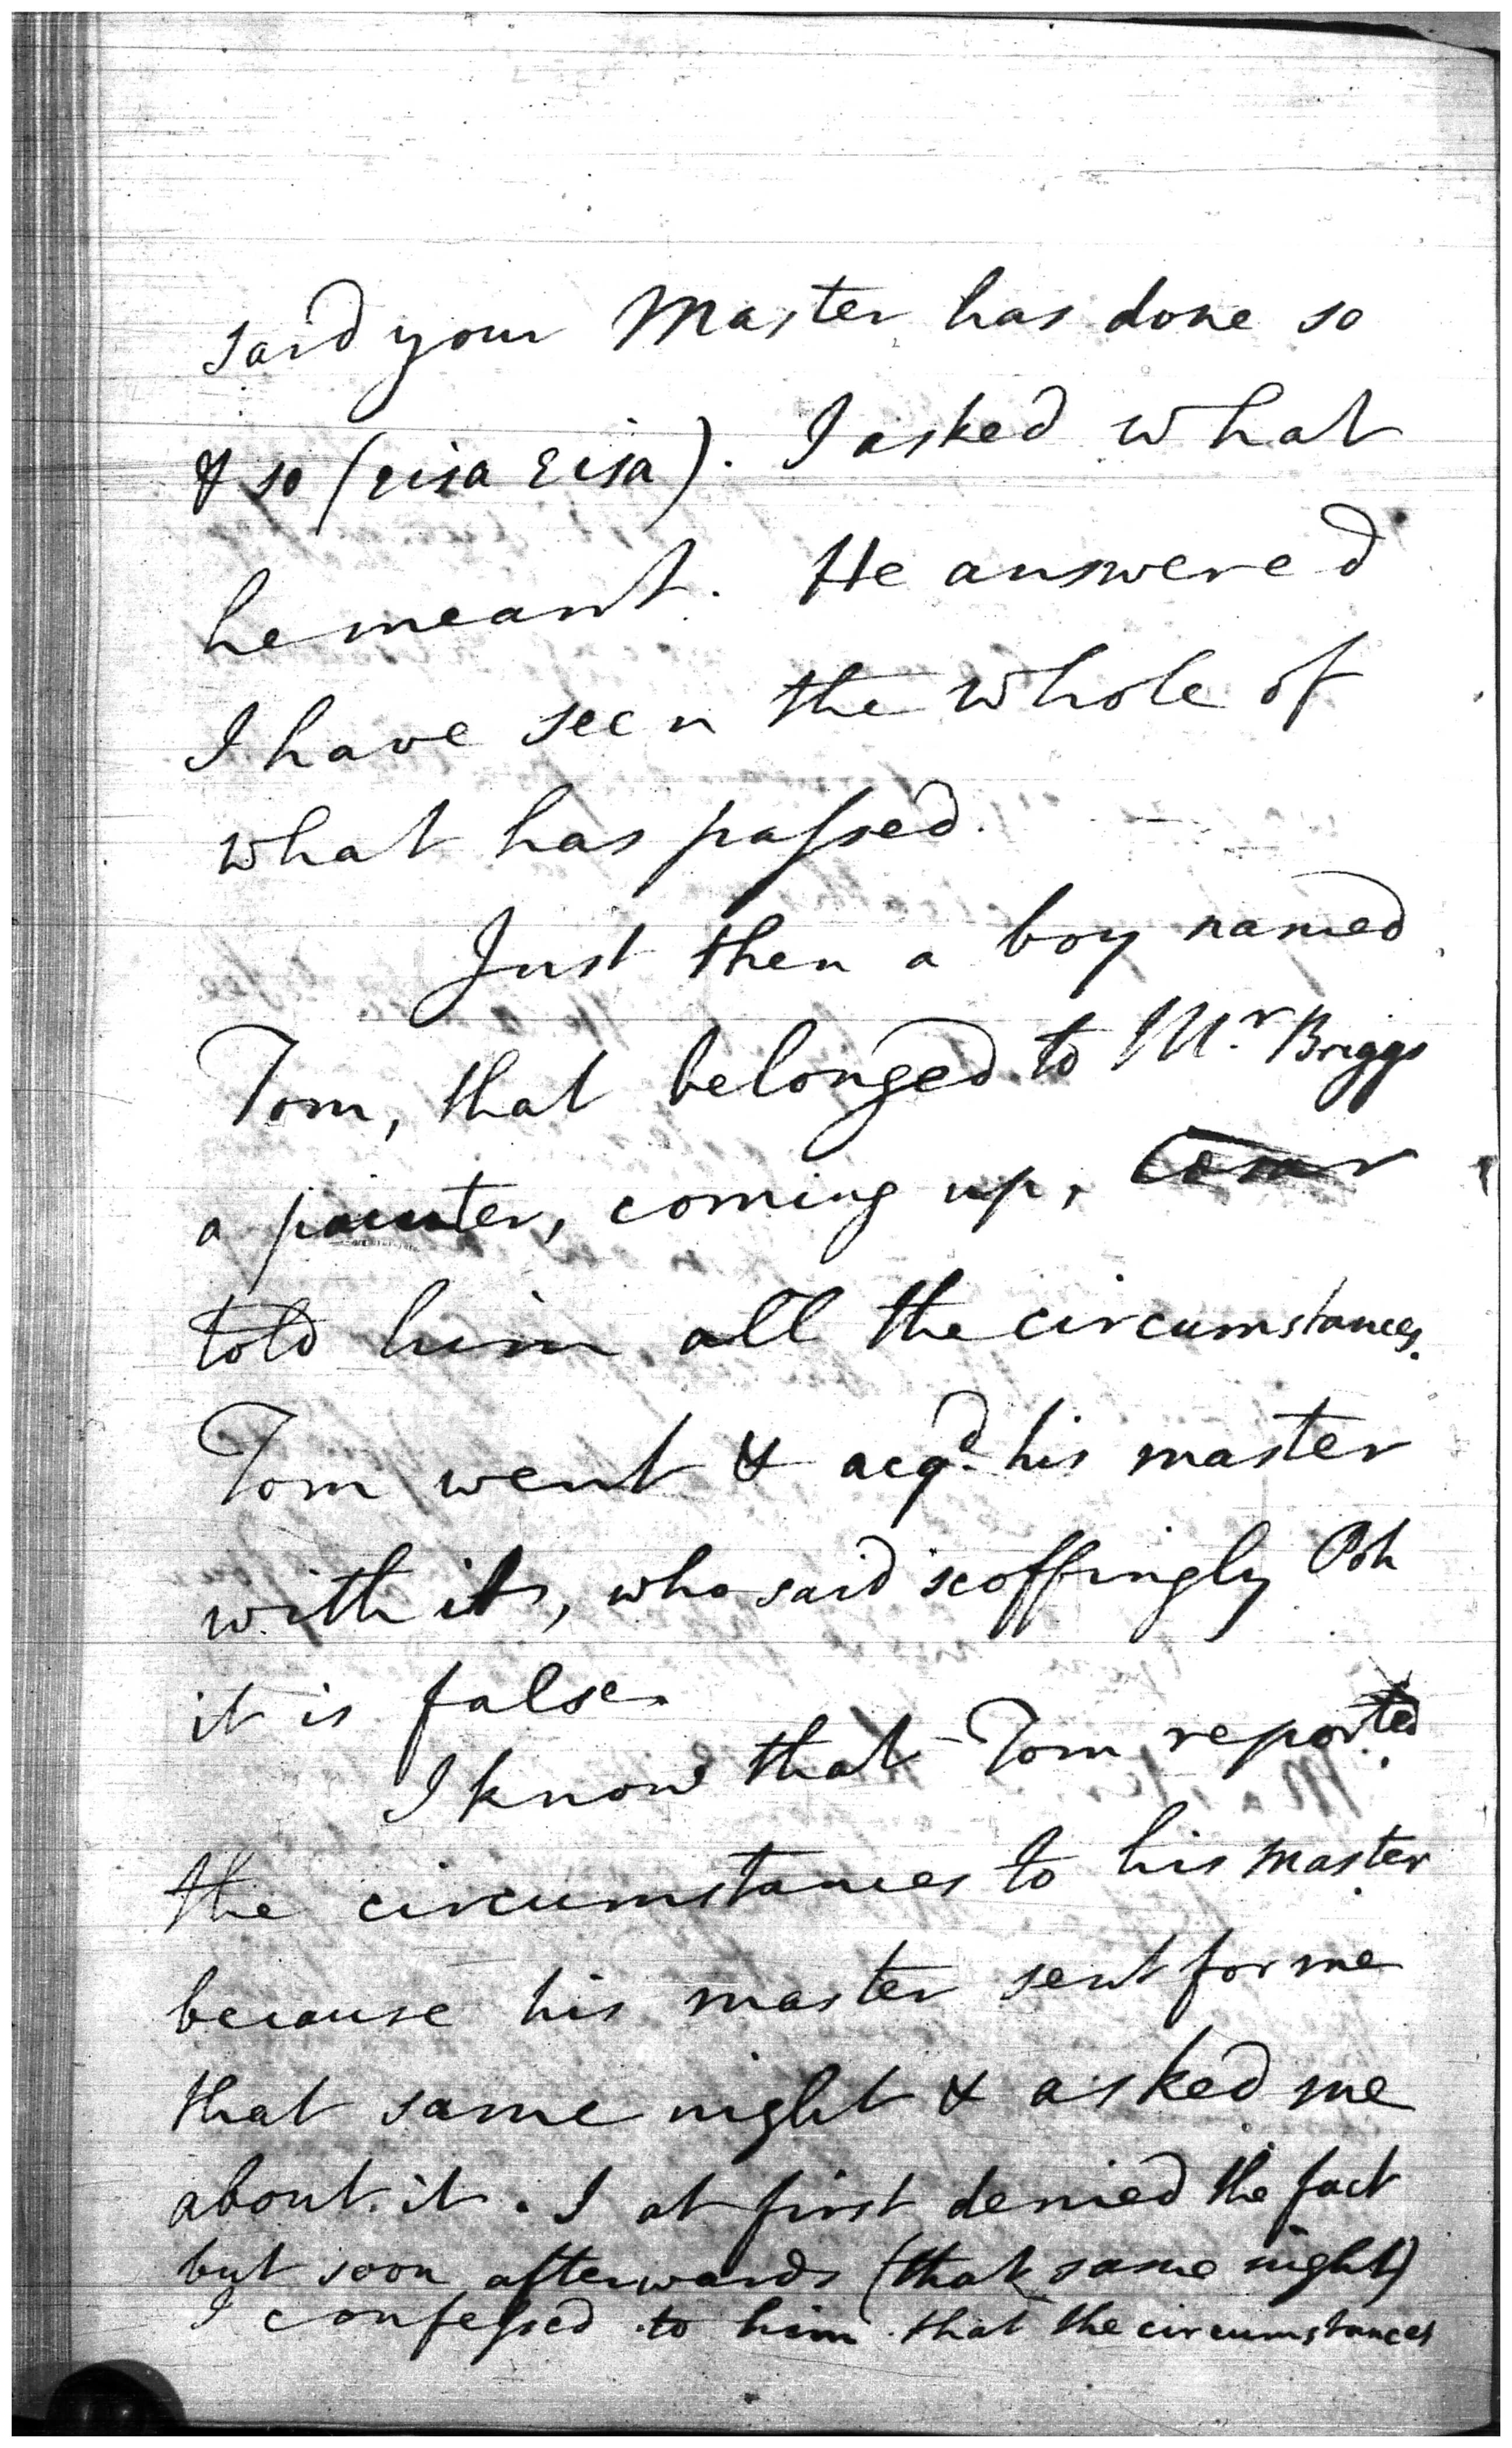 said your Master has done so
& so (eisa eisa). I asked what
he meant. He answered
I have seen the whole of
what has passed.
Just then a boy named
Tom, that belonged to Mr. Briggs
a painter, coming up,
told him all the circumstances.
Tom went & acqd. his master
with it, who said scoffingly Poh
it is false.
I know that Tom reported
the circumstances to his master
because his master sent for me
that same night & asked me
about it. I at first denied the fact
but soon afterwards (that same night)
I confessed to him that the circumstances